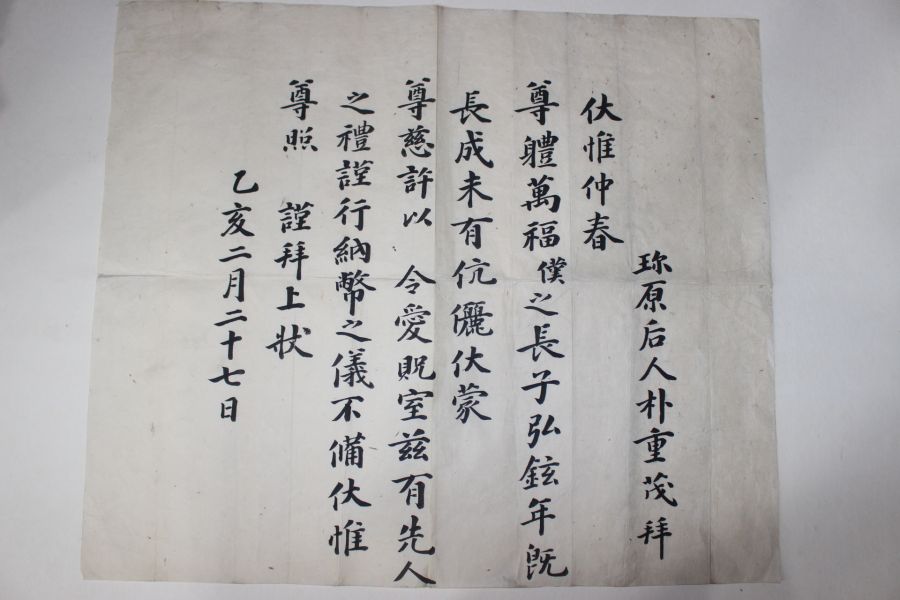 珎原后人朴重茂拜
伏惟仲春
尊軆萬福僕之長子弘鉉年既
長成未有伉儷伏蒙
尊慈許以 令愛貺室玆有先人
之禮謹行納幣之儀不備伏惟
尊照 謹拜上狀
乙亥二月二十七日